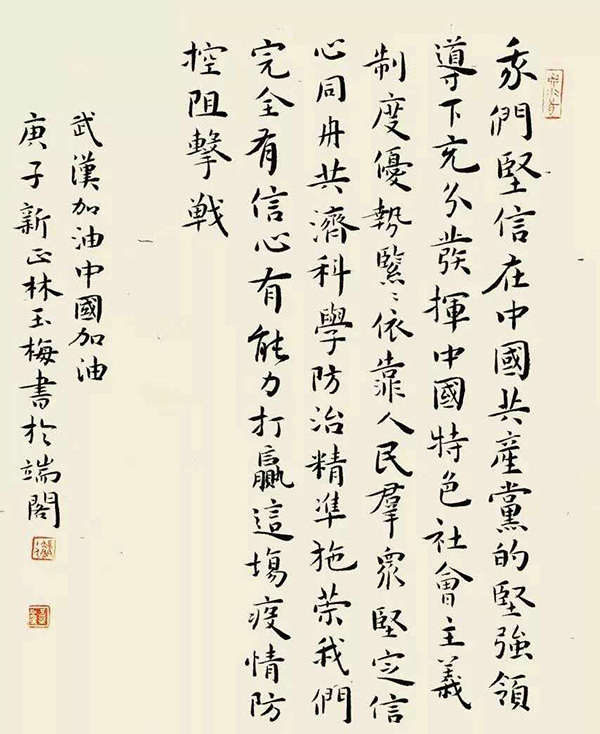 我們堅信在中國共產黨的堅強領
導下充分發揮中國特色社會主義
制度優勢緊〻依靠人民羣眾堅定信
心同舟共濟科學防治精準施策我們
完全有信心有能力打贏這場疫情防
控阻擊戰
武漢加油中國加油
庚子新正林玉梅書於端閣